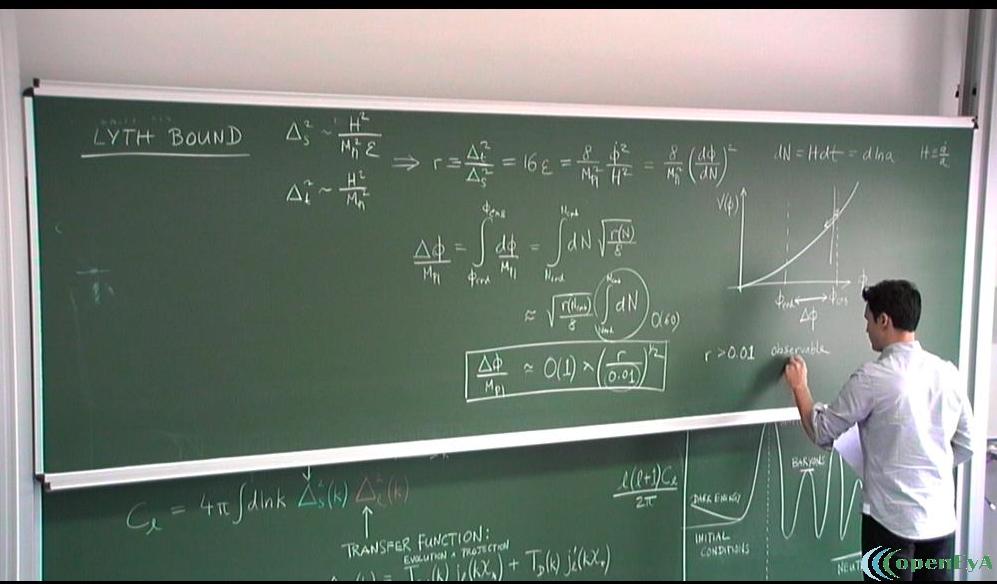 LYTH BOUND
Δ_s² ~ H² / (M_pl² ε)
Δ_t² ~ H² / M_pl²
⟹ r ≡ Δ_t² / Δ_s² = 16ε = 8/M_pl² φ̇²/H² = 8/M_pl² (dφ/dN)²
dN = Hdt = dlna H ≡ ȧ/a
Δφ/M_pl = ∫_{φ_end}^{φ_cmb} dφ/M_pl = ∫_{N_end}^{N_cmb} dN √(r(N)/8)
≈ √(r(N_cmb)/8) ∫_{N_end}^{N_cmb} dN O(60)
Δφ/M_pl ≈ O(1) × (r/0.01)^{1/2}
V(φ)
φ_end ↔ φ_cmb
Δφ
r > 0.01 observable
C_ℓ = 4π ∫ dlnk Δ_s²(k) Δ_ℓ²(k)
TRANSFER FUNCTION:
EVOLUTION + PROJECTION
j_ℓ(kχ_*) + T_D(k) j_ℓ'(kχ_*)
ℓ(ℓ+1)C_ℓ / 2π
DARK ENERGY
INITIAL
CONDITIONS
BARYONS
openEyA